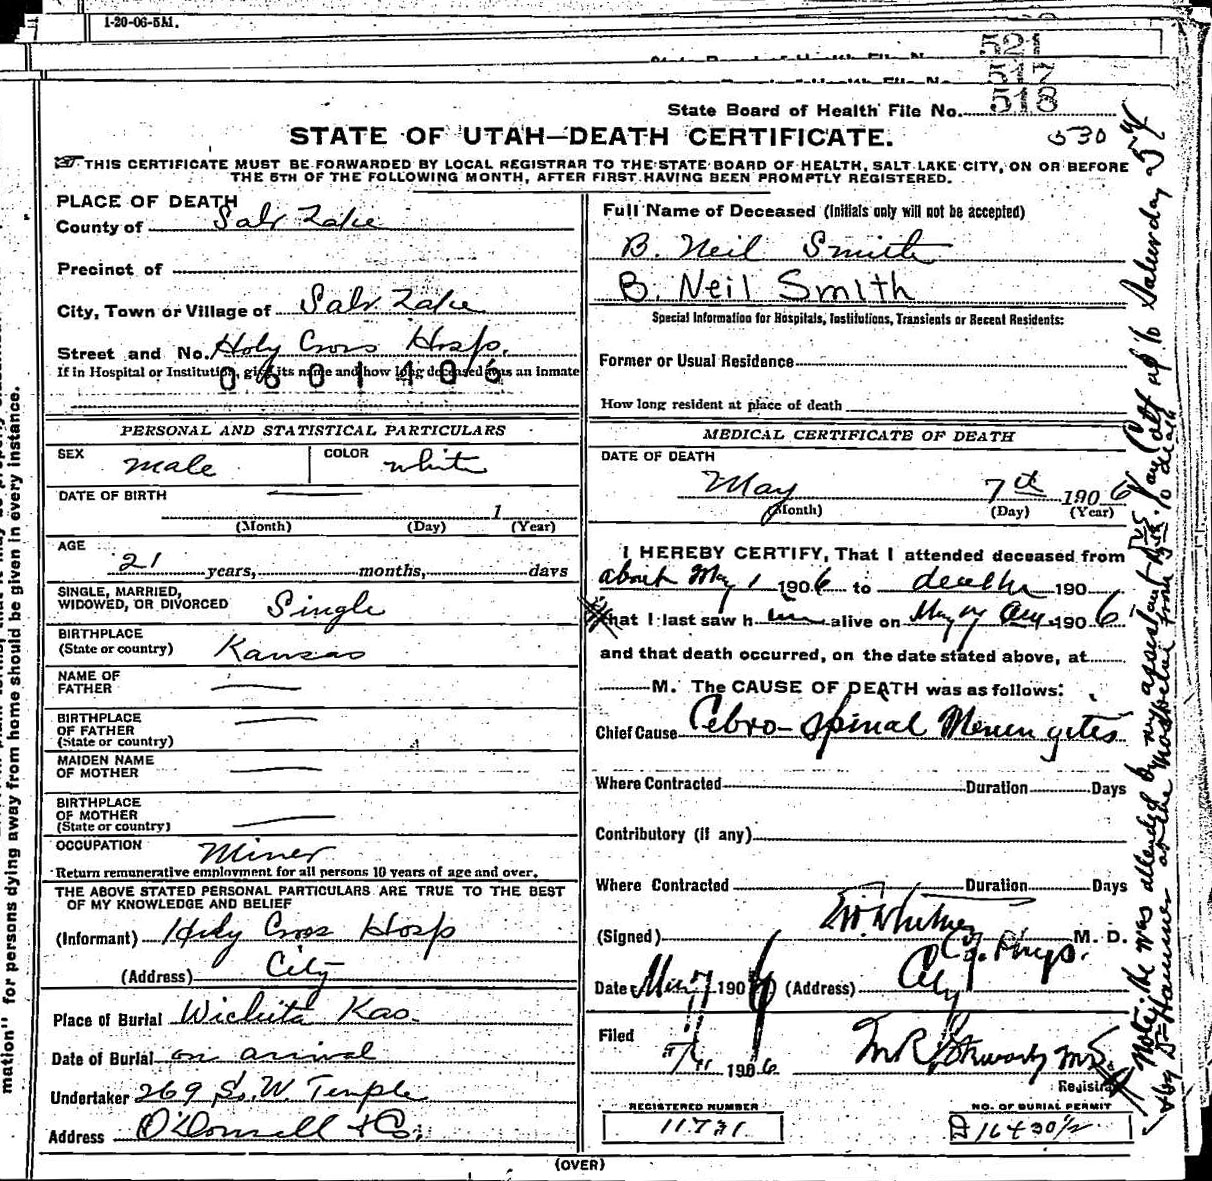 1-20-06-5M.
521
517
State Board of Health File No. 518
STATE OF UTAH—DEATH CERTIFICATE.
530
THIS CERTIFICATE MUST BE FORWARDED BY LOCAL REGISTRAR TO THE STATE BOARD OF HEALTH, SALT LAKE CITY, ON OR BEFORE
THE 5TH OF THE FOLLOWING MONTH, AFTER FIRST HAVING BEEN PROMPTLY REGISTERED.
PLACE OF DEATH
County of Salt Lake
Precinct of
City, Town or Village of Salt Lake
Street and No. Holy Cross Hosp.
If in Hospital or Institution, give its name and how long deceased was an inmate
0601406
PERSONAL AND STATISTICAL PARTICULARS
SEX male COLOR white
DATE OF BIRTH
1
(Month) (Day) (Year)
AGE
21 years, months, days
SINGLE, MARRIED,
WIDOWED, OR DIVORCED Single
BIRTHPLACE
(State or country) Kansas
NAME OF
FATHER
BIRTHPLACE
OF FATHER
(State or country)
MAIDEN NAME
OF MOTHER
BIRTHPLACE
OF MOTHER
(State or country)
OCCUPATION Miner
Return remunerative employment for all persons 10 years of age and over.
THE ABOVE STATED PERSONAL PARTICULARS ARE TRUE TO THE BEST
OF MY KNOWLEDGE AND BELIEF
(Informant) Holy Cross Hosp
(Address) City
Place of Burial Wichita Kas.
Date of Burial on arival
Undertaker 269 So. W. Temple
Address O'Donnell & Co.
Full Name of Deceased (Initials only will not be accepted)
B. Neil Smith
B. Neil Smith
Special Information for Hospitals, Institutions, Transients or Recent Residents:
Former or Usual Residence
How long resident at place of death
MEDICAL CERTIFICATE OF DEATH
DATE OF DEATH
May 7th 1906
(Month) (Day) (Year)
I HEREBY CERTIFY, That I attended deceased from
about May 1 1906 to death 190
that I last saw him alive on May 190 6
and that death occurred, on the date stated above, at
M. The CAUSE OF DEATH was as follows:
Chief Cause Cebro-spinal Meningites
Where Contracted Duration Days
Contributory (if any)
Where Contracted Duration Days
(Signed) Whitney M. D.
Cy. Phys.
Date May 7 1906 (Address) City
Filed
5/ 1906
Registrar
REGISTERED NUMBER
11731
NO. OF BURIAL PERMIT
D 16430½
(OVER)
mation" for persons dying away from home should be given in every instance.
Note: He was attended by my assistant